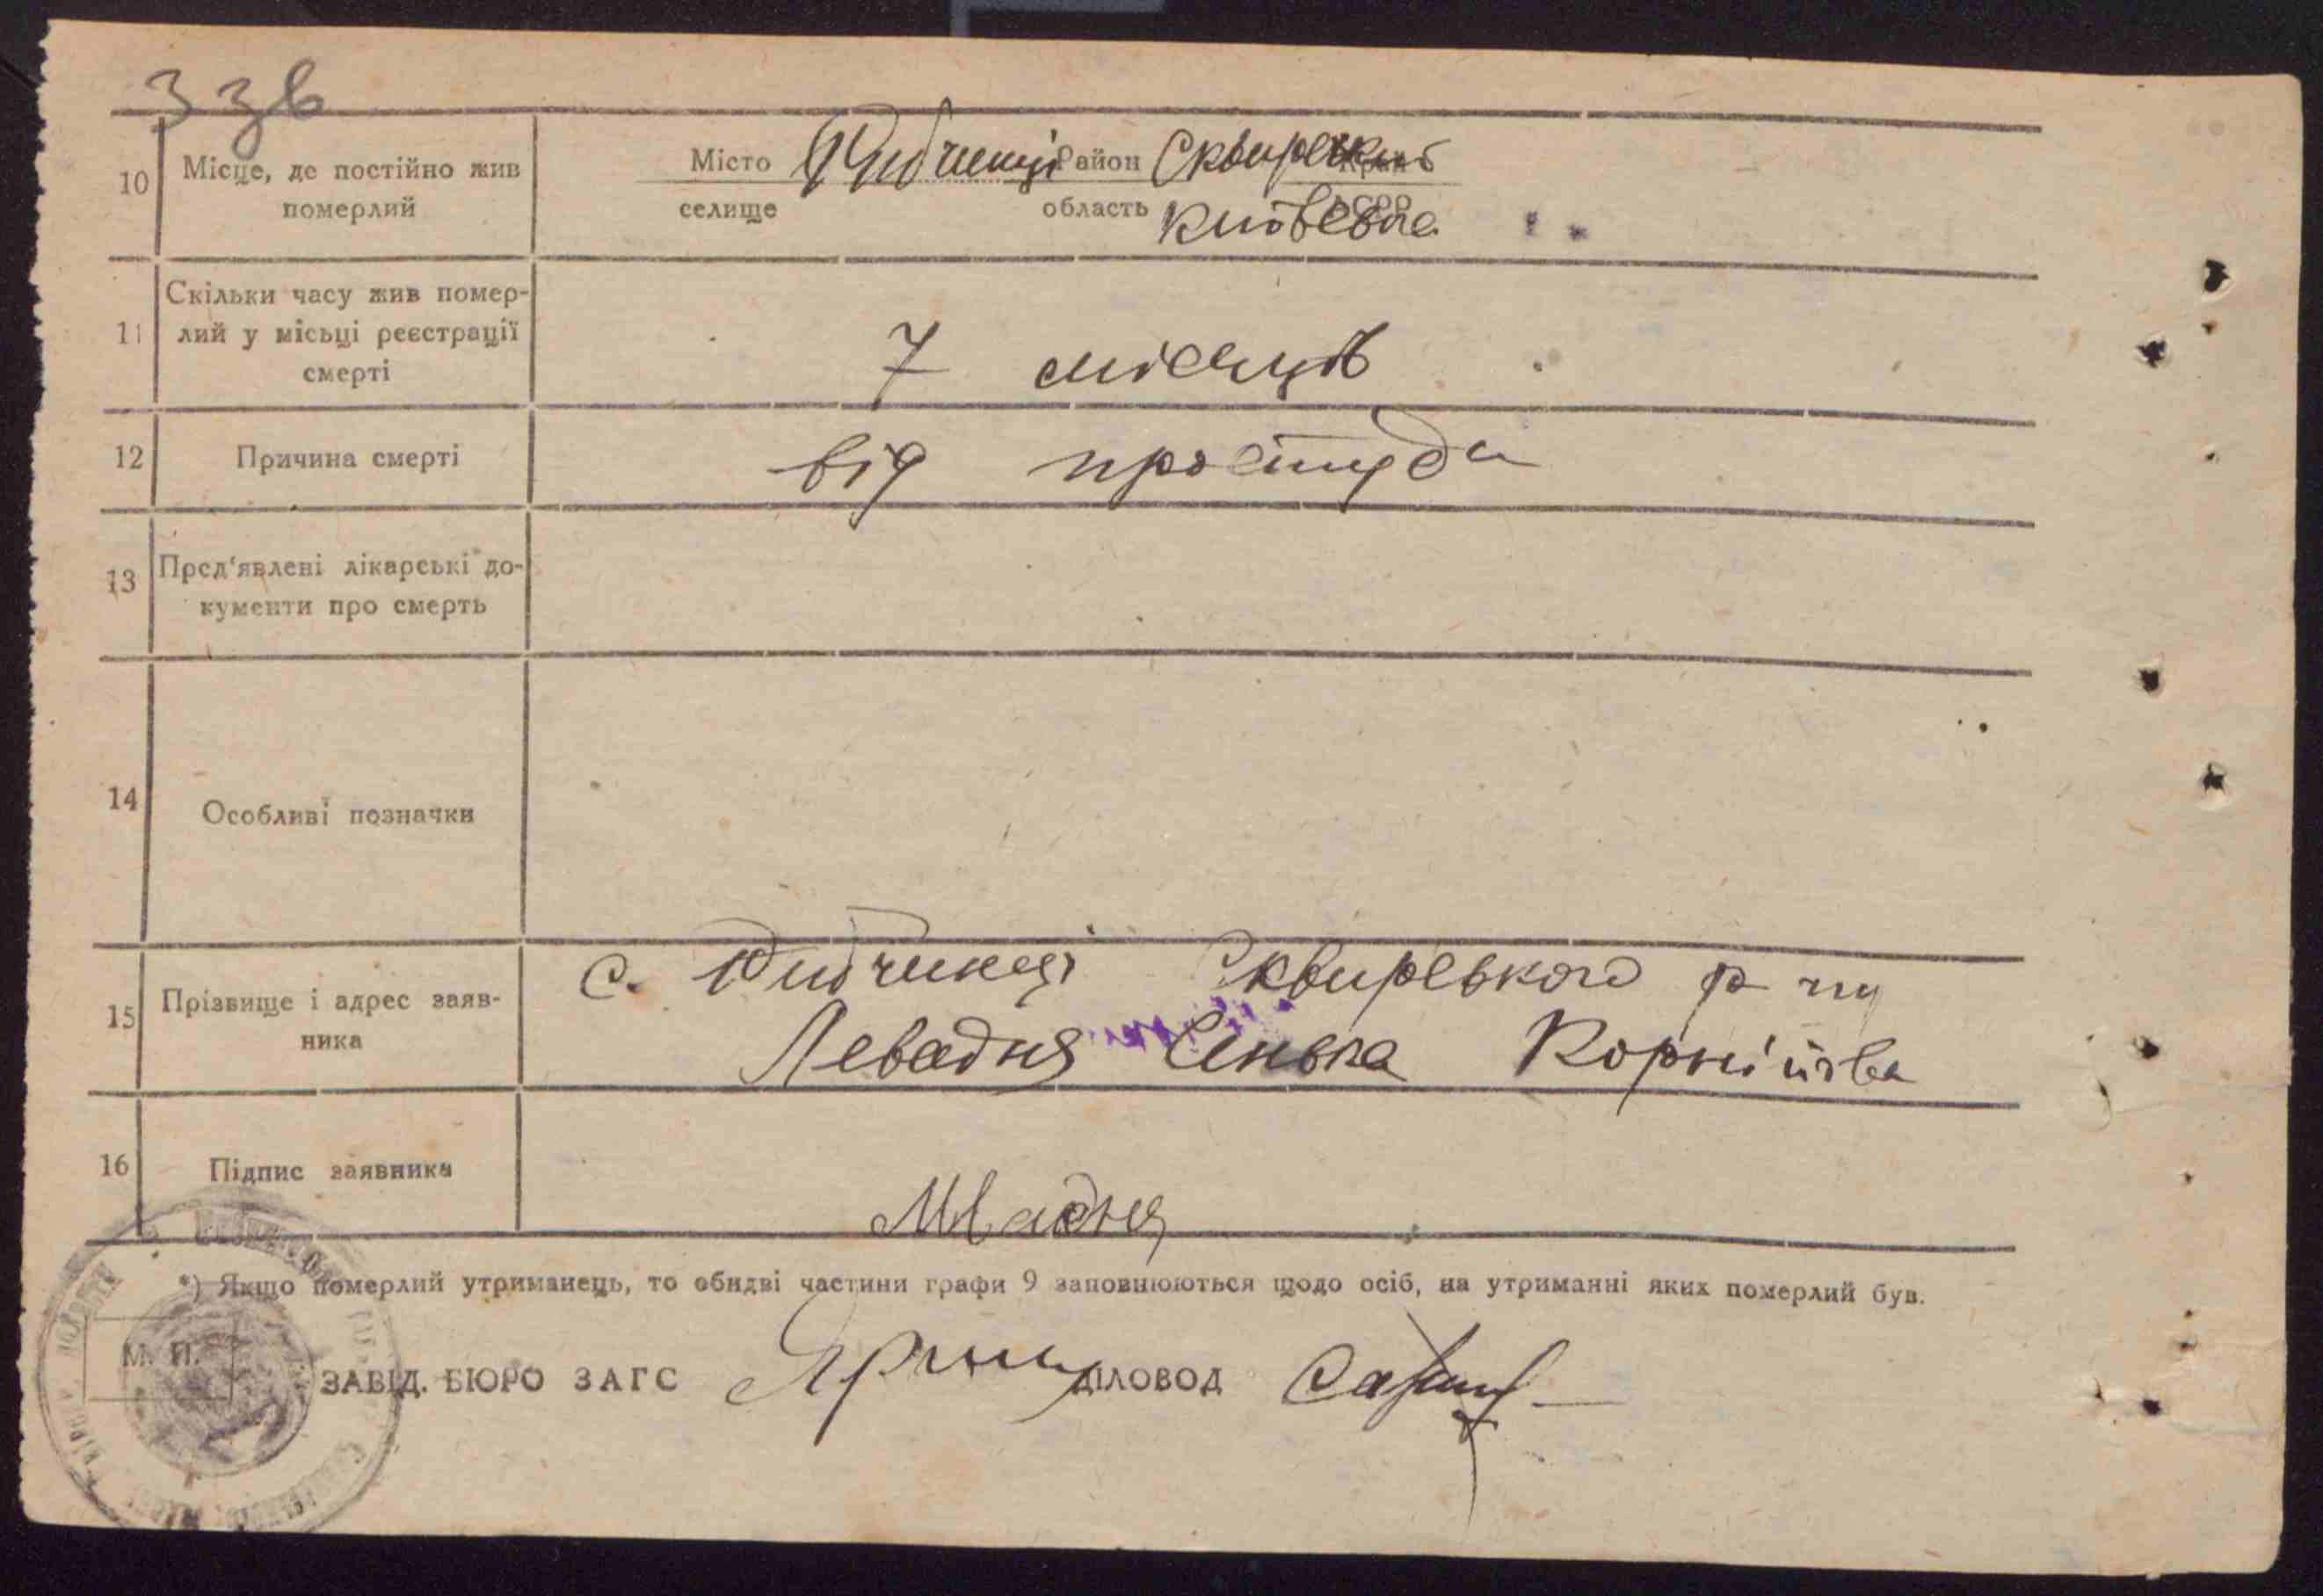 33в
10 Місце, де постійно жив Місто Рибчинці Район Сквирський Край
померлий селище область Київська АСРР
Скільки часу жив помер-
11 лий у місьці реєстрації 7 місяців
смерті
12 Причина смерті від простуди
13 Пред'явлені лікарські до-
кументи про смерть
14 Особливі позначки
с. Рибчинці Сквирського р-ну
15 Прізвище і адрес заяв-
ника Левадня Корніївка
16 Підпис заявника
*) Якщо померлий утриманець, то обидві частини графи 9 заповнюються щодо осіб, на утриманні яких померлий був.
М. П.
ЗАВІД. БЮРО ЗАГС ДІЛОВОД